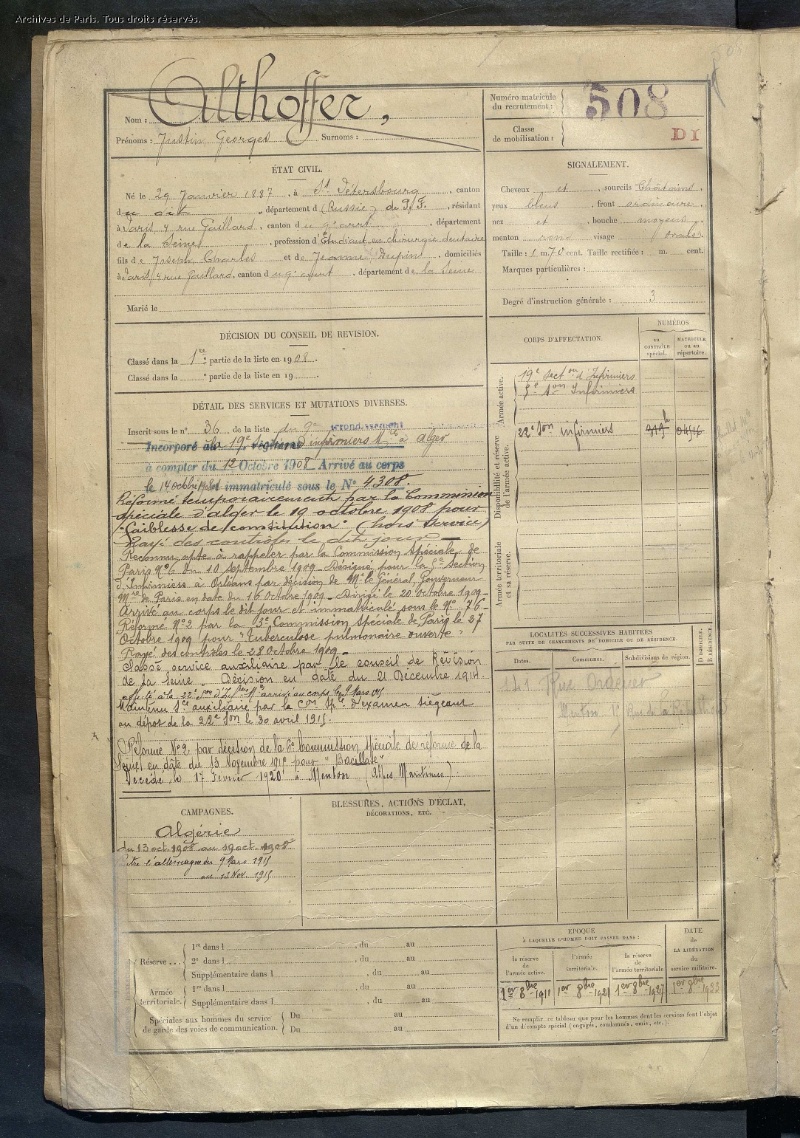 Archives de Paris. Tous droits réservés.
Nom : Althoffer,
Prénoms : Justin Georges Surnoms :
Numéro matricule du recrutement : 508
Classe de mobilisation : D I
ÉTAT CIVIL.
Né le 29 Janvier 1887, à St Pétersbourg, canton
du dit, département d (Russie) de P. F., résidant
à Paris 7 rue Gaillard, canton du 9e arrt, département
de la Seine, profession d'Étudiant en chirurgie dentaire
fils de Joseph Charles et de Jeanne Dupins domiciliés
à Paris, 7 rue Gaillard, canton du 9e arrt, département de la Seine
Marié le
SIGNALEMENT.
Cheveux et sourcils Châtains,
yeux bleus, front ordinaire,
nez et bouche moyens,
menton rond visage ovale.
Taille : 1 m. 70 cent. Taille rectifiée : m. cent.
Marques particulières :
Degré d'instruction générale : 3
DÉCISION DU CONSEIL DE RÉVISION.
Classé dans la 1re partie de la liste en 1908.
Classé dans la partie de la liste en 19
DÉTAIL DES SERVICES ET MUTATIONS DIVERSES.
Inscrit sous le n° 36 de la liste du 9e arrondissement
Incorporé à la 19e d'infirmiers Mres à Alger
à compter du 12 Octobre 1908 Arrivé au corps
le 14 octobre et immatriculé sous le N° 4308.
Réformé temporairement par la Commission
spéciale d'Alger le 19 octobre 1908 pour
"Faiblesse de constitution" (hors Service)
Rayé des contrôles le dit jour
Reconnu apte à rappeler par la Commission Spéciale de
Paris N° 6 du 10 septembre 1909 - Désigné pour la 5e Section
d'Infirmiers à Orléans par décision de Mr le Général Gouverneur
Mre de Paris en date du 16 Octobre 1909 - Dirigé le 20 Octobre 1909 -
Arrivé au corps le dit jour et immatriculé sous le N° 76 -
Réformé N° 2 par la 3e Commission Spéciale de Paris le 27
Octobre 1909 pour "Tuberculose pulmonaire ouverte"
Rayé des contrôles le 28 Octobre 1909 -
Classé service auxiliaire par le conseil de Révision
de la Seine - Décision en date du 21 Décembre 1914.
affecté à la 22e Son d'Inf. Mres arrivé au corps le 9 Mars 1915
Maintenu Sce auxiliaire par la Con Sple d'examen siégeant
au dépôt de la 22e Son le 30 avril 1915.
Réformé N° 2 par décision de la 6e Commission spéciale de réforme de la
en date du 13 Novembre 1915 pour "Bacillose"
Décédé, le 17 Février 1920 à Menton (Alpes Maritimes).
CORPS D'AFFECTATION.
NUMÉROS
AU CONTRÔLE spécial.
MATRICULE OU AU répertoire.
Armée active.
19e Section d'Infirmiers
5e Son Infirmiers
Disponibilité et réserve de l'armée active.
22e Son infirmiers
Armée territoriale et sa réserve.
LOCALITÉS SUCCESSIVES HABITÉES
PAR SUITE DE CHANGEMENTS DE DOMICILE OU DE RÉSIDENCE.
Dates. Communes. Subdivisions de région. D domicile. R résidence.
141 Rue Ordener
Menton, Rue de la République
CAMPAGNES.
Algérie
du 13 oct 1908 au 19 oct. 1908
Contre l'allemagne du 9 Mars 1915
au 13 Nov. 1915
BLESSURES, ACTIONS D'ÉCLAT,
DÉCORATIONS, ETC.
Réserve . . .
1re dans l , du au
2e dans l , du au
Supplémentaire dans l , du au
Armée territoriale.
1re dans l , du au
Supplémentaire dans l , du au
Spéciales aux hommes du service de garde des voies de communication.
Du au
Du au
ÉPOQUE
À LAQUELLE L'HOMME DOIT PASSER DANS :
la réserve de l'armée active.
l'armée territoriale.
la réserve de l'armée territoriale
DATE de LA LIBÉRATION du service militaire.
1er 8bre 1911
1er 8bre 1921
1er 8bre 1927
1er 8bre 1933
Ne remplir ce tableau que pour les hommes dont les services font l'objet
d'un décompte spécial (engagés, condamnés, omis, etc.)